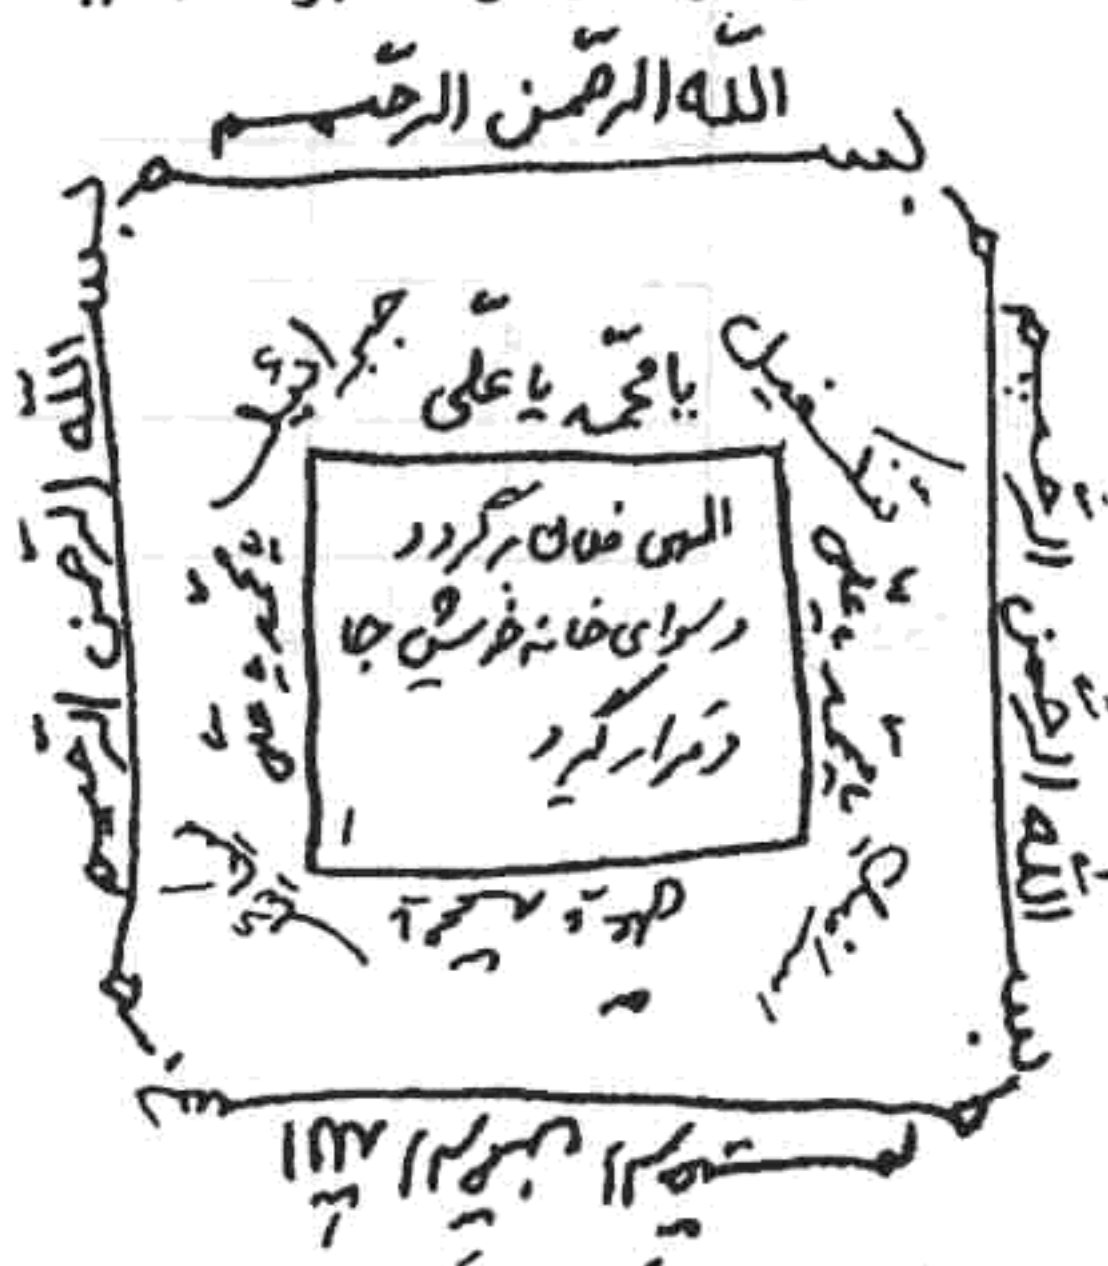 بسم
الله الرحمن الرحیم
بسم
الله الرحمن الرحیم
بسم
الله الرحمن الرحیم
بسم
الله الرحمن الرحیم
جبرائیل
میکائیل
اسرافیل
عزرائیل
یا محمد یا علی
یا محمد یا علی
یا محمد یا علی
یا محمد یا علی
الهی فلان برگردد
در سرای خانه خویش جا
و قرار گیرد
۱